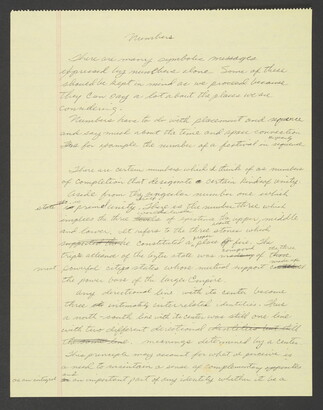 Numbers
There are many symbolic messages
expressed by numbers alone. Some of these
should be kept in mind as we proceed because
they can say a lot about the places we are
considering.
Numbers have to do with placement and square
and say much about the time and space connection
Thus for example the number of a festival in
There are certain numbers which I think of as numbers
of completion that designate a certain kind of unity.
Aside from the singular number one which
unity. There is the number three which
implies the three of upper, middle
and lower. it refers to the three stones which
constituted a place of fire. The
triple alliance of the Aztec state was of three
most powerful states whose mutual support
the power base of the larger Empire.
Any directional line with its center became
three intimately interrelated entities. Thus
a north-south line with its center was still one line
with two different directional
meanings determined by a center.
This principle may account for what I perceive is
a need to maintain a sense of complementary opposites
as an important part of any identity whether it is a